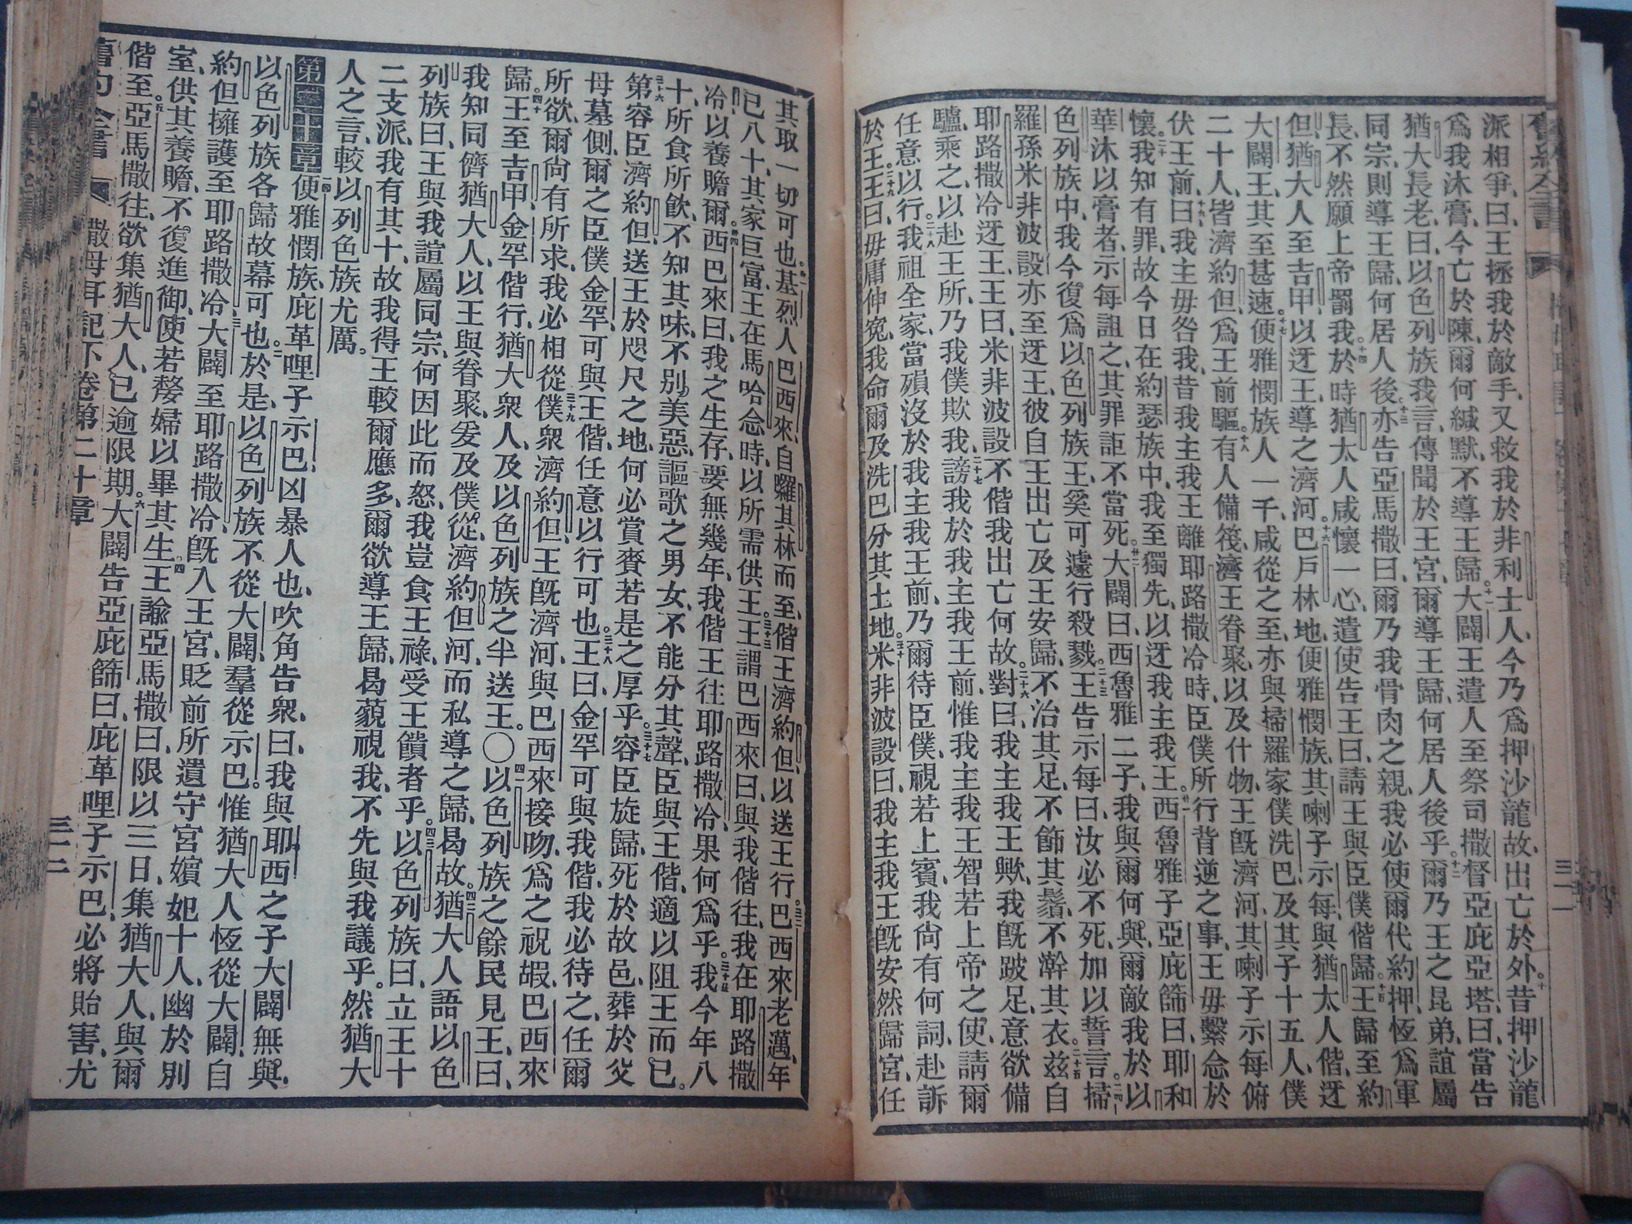 派相爭、曰、王拯我於敵手、又救我於非利士人、今乃爲押沙龍故、出亡於外、昔押沙龍
爲我沐膏、今亡於陳、爾何緘默、不導王歸、大闢王遣人至祭司撒督亞庇亞塔、曰、當告
猶大長老、曰、以色列族我言、傳聞於王宮、爾導王歸、何居人後乎、爾乃王之昆弟、誼屬
同宗、則導王歸、何居人後、亦告亞馬撒曰、爾乃我骨肉之親、我必使爾代約押、恆爲軍
長、不然、願上帝罰我、於時猶大人咸懷一心、遣使告王曰、請王與臣僕偕歸、王歸至約
但、猶大人至吉甲、以迓王、導之濟河、巴戶林地、便雅憫族、其喇子示每、與猶大人偕、迓
大闢王、其至甚速、便雅憫族人一千、咸從之至、亦與掃羅家僕洗巴、及其子十五人、僕
二十人、皆濟約但、爲王前驅、有人備筏、濟王眷聚、以及什物、王旣濟河、其喇子示每俯
伏王前、曰、我主毋咎我、昔我主我王離耶路撒冷時、臣僕所行背逆之事、王毋繫念於
懷、我知有罪、故今日在約瑟族中、我至獨先、以迓我主我王、西魯雅子亞庇篩曰、耶和
華沐以膏者、示每詛之、其罪詎不當死、大闢曰、西魯雅二子、我與爾何與、爾敵我、於以
色列族中、我今復爲以色列族王、奚可遽行殺戮、王告示每曰、汝必不死、加以誓言、掃
羅孫米非波設、亦至迓王、彼自王出亡、及王安歸、不治其足、不飾其鬚、不澣其衣、茲自
耶路撒冷迓王、王曰、米非波設、不偕我出亡何故、對曰、我主我王歟、我旣跛足、意欲備
驢、乘之、以赴王所、乃我僕欺我、謗我於我主我王前、惟我主我王智若上帝之使、請爾
任意以行、我祖全家、當殞沒於我主我王前、乃爾待臣僕、視若上賓、我尙有何詞、赴訴
於王、王曰、毋庸伸寃、我命爾及洗巴分其土地、米非波設曰、我主我王旣安然歸宮、任
其取一切可也、基烈人巴西來、自囉其林而至、偕王濟約但、以送王行、巴西來老邁、年
已八十、其家巨富、王在馬哈念時、以所需供王、王謂巴西來曰、與我偕往、我在耶路撒
冷以養贍爾、巴西來曰、我之生存、要無幾年、我偕王往耶路撒冷、果何爲乎、我今年八
十、所食所飲、不知其味、不別美惡、謳歌之男女、不能分其聲、臣與王偕、適以阻王而已、
第容臣濟約但、送王於咫尺之地、何必賞賚若是之厚乎、容臣旋歸、死於故邑、葬於父
母墓側、爾之臣僕金罕、可與王偕、任意以行可也、王曰、金罕可與我偕、我必待之、任爾
所欲、爾尙有所求、我必相從、僕衆濟約但、王旣濟河、與巴西來接吻、爲之祝嘏、巴西來
歸、王至吉甲、金罕偕行、猶大衆人、及以色列族之半送王、〇以色列族之餘民見王、曰、
我知同儕猶大人、以王與眷聚、爰及僕從、濟約但河、而私導之歸、曷故、猶大人語以色
列族曰、王與我誼屬同宗、何因此而怒、我豈食王祿、受王饋者乎、以色列族曰、立王十
二支派、我有其十、故我得王較爾應多、爾欲導王歸、曷藐視我、不先與我議乎、然猶大
人之言、較以列色族尤厲。
第二十章 便雅憫族庇革哩子示巴、凶暴人也、吹角告衆、曰、我與耶西之子大闢無與、
以色列族各歸故幕可也、於是以色列族不從大闢、羣從示巴、惟猶大人恆從大闢、自
約但擁護至耶路撒冷、大闢至耶路撒冷、旣入王宮、貶前所遺守宮嬪妃十人、幽於別
室、供其養贍、不復進御、使若嫠婦、以畢其生、王諭亞馬撒曰、限以三日、集猶大人、與爾
偕至、亞馬撒往、欲集猶大人、已逾限期、大闢告亞庇篩曰、庇革哩子示巴、必將貽害、尤
舊約全書 撒母耳記下 卷第二十章 三二